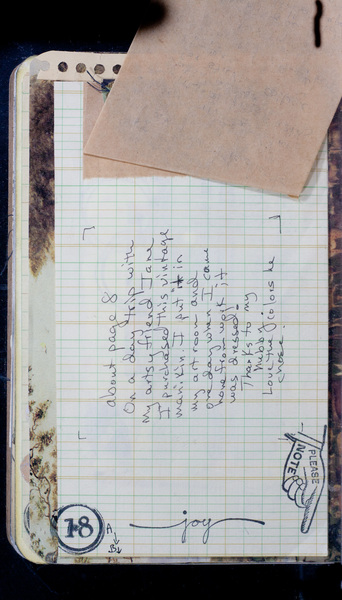 about page 8
On a day trip with
my artsy friend Jane
I purchased this vintage
manikin. I put it in
my art room and
one day when I came
home from work it
was dressed!
Thanks to my
hubby.
Love the colors he
chose.
PLEASE
NOTE
joy
18
A
B